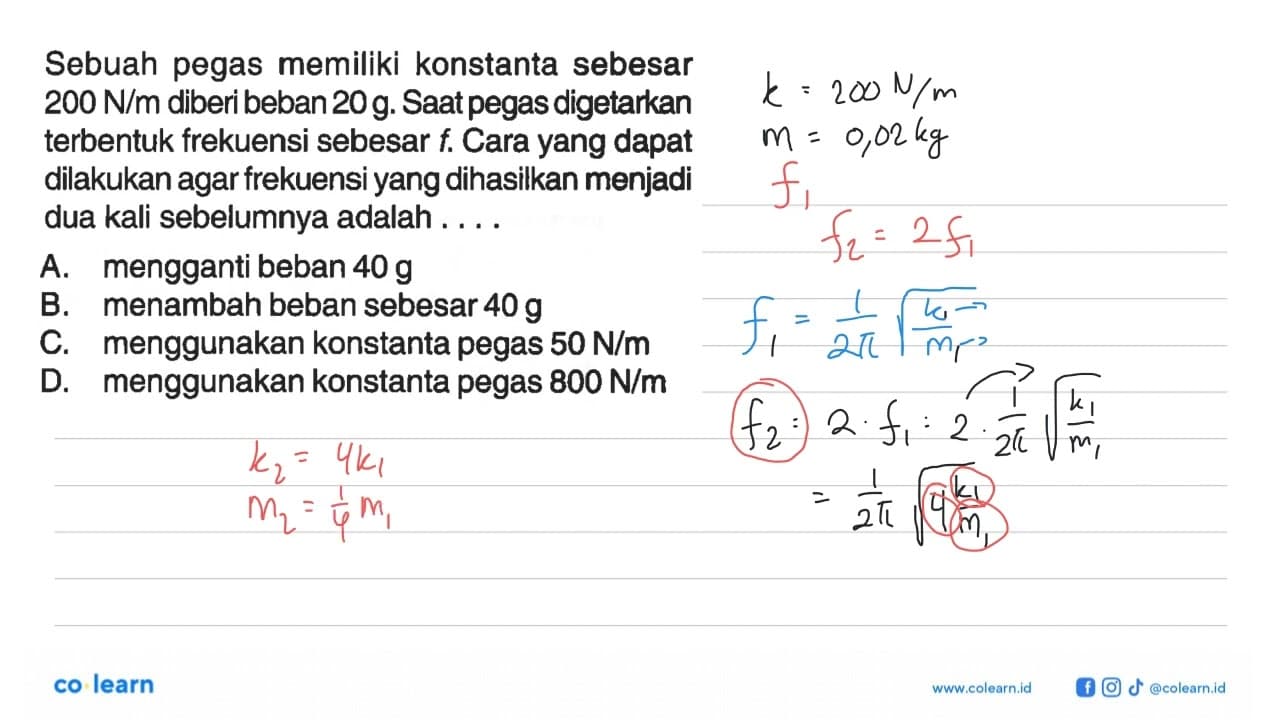 Sebuah pegas memiliki konstanta sebesar
200 N/m diberi beban 20 g. Saat pegas digetarkan
terbentuk frekuensi sebesar f. Cara yang dapat
dilakukan agar frekuensi yang dihasilkan menjadi
dua kali sebelumnya adalah . . . .
A. mengganti beban 40 g
B. menambah beban sebesar 40 g
C. menggunakan konstanta pegas 50 N/m
D. menggunakan konstanta pegas 800 N/m
k = 200 N/m
m = 0,02 kg
f₁
f₂ = 2f₁
f₁ = 1/2π √(k₁/m₁)
f₂ = 2 · f₁ = 2 · 1/2π √(k₁/m₁)
= 1/2π √(4 k₁/m₁)
k₂ = 4k₁
m₂ = 1/4 m₁
co learn
www.colearn.id
@colearn.id